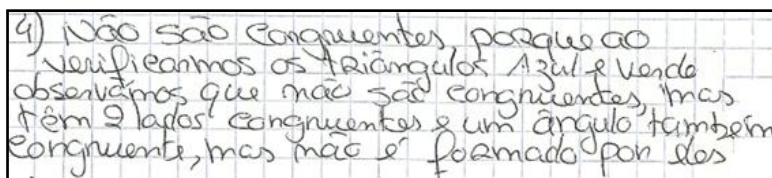 4) Não são congruentes porque ao
verificarmos os triângulos Azul e Verde
observamos que não são congruentes, mas
têm 2 lados congruentes e um ângulo também
congruente, mas não é formado por eles